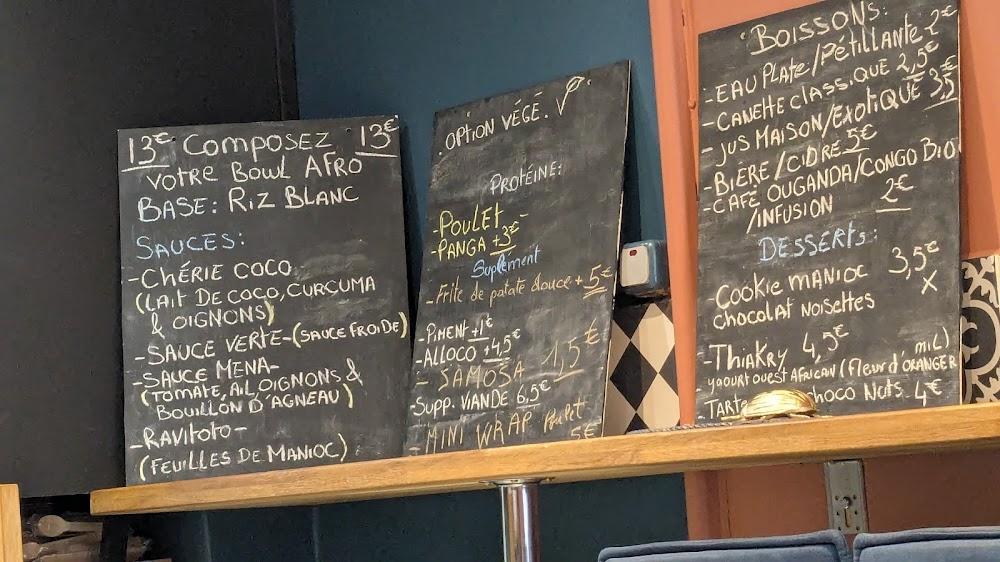 13€ COMPOSEZ 13€
VOTRE BOWL AFRO
BASE: RIZ BLANC
SAUCES:
-CHÉRIE COCO
(LAIT DE COCO, CURCUMA
& OIGNONS)
-SAUCE VERTE-(SAUCE FROIDE)
-SAUCE MENA-
(TOMATE, AIL, OIGNONS &
BOUILLON D'AGNEAU)
-RAVITOTO-
(FEUILLES DE MANIOC)
OPTION VÉGÉ.
PROTÉINE:
-POULET-
-PANGA +3€
Suplément
-Frite de patate douce +5€
-PIMENT +1€
-ALLOCO +4,5€
-SAMOSA 1,5€
-SUPP. VIANDE 6,5€
-MINI WRAP Poulet
5€
BOISSONS:
-EAU PLATE/PÉTILLANTE 2€
-CANETTE CLASSIQUE 2,5€
-JUS MAISON/EXOTIQUE 3,5€
-BIÈRE/CIDRE 5€
-CAFÉ OUGANDA/CONGO BIO
/INFUSION 2€
DESSERTS:
-COOKIE MANIOC 3,5€
CHOCOLAT NOISETTES X
-THIAKRY 4,5€ mil)
YAOURT OUEST AFRICAIN (Fleur d'ORANGER
-TARTE CHOCO NUTS 4€